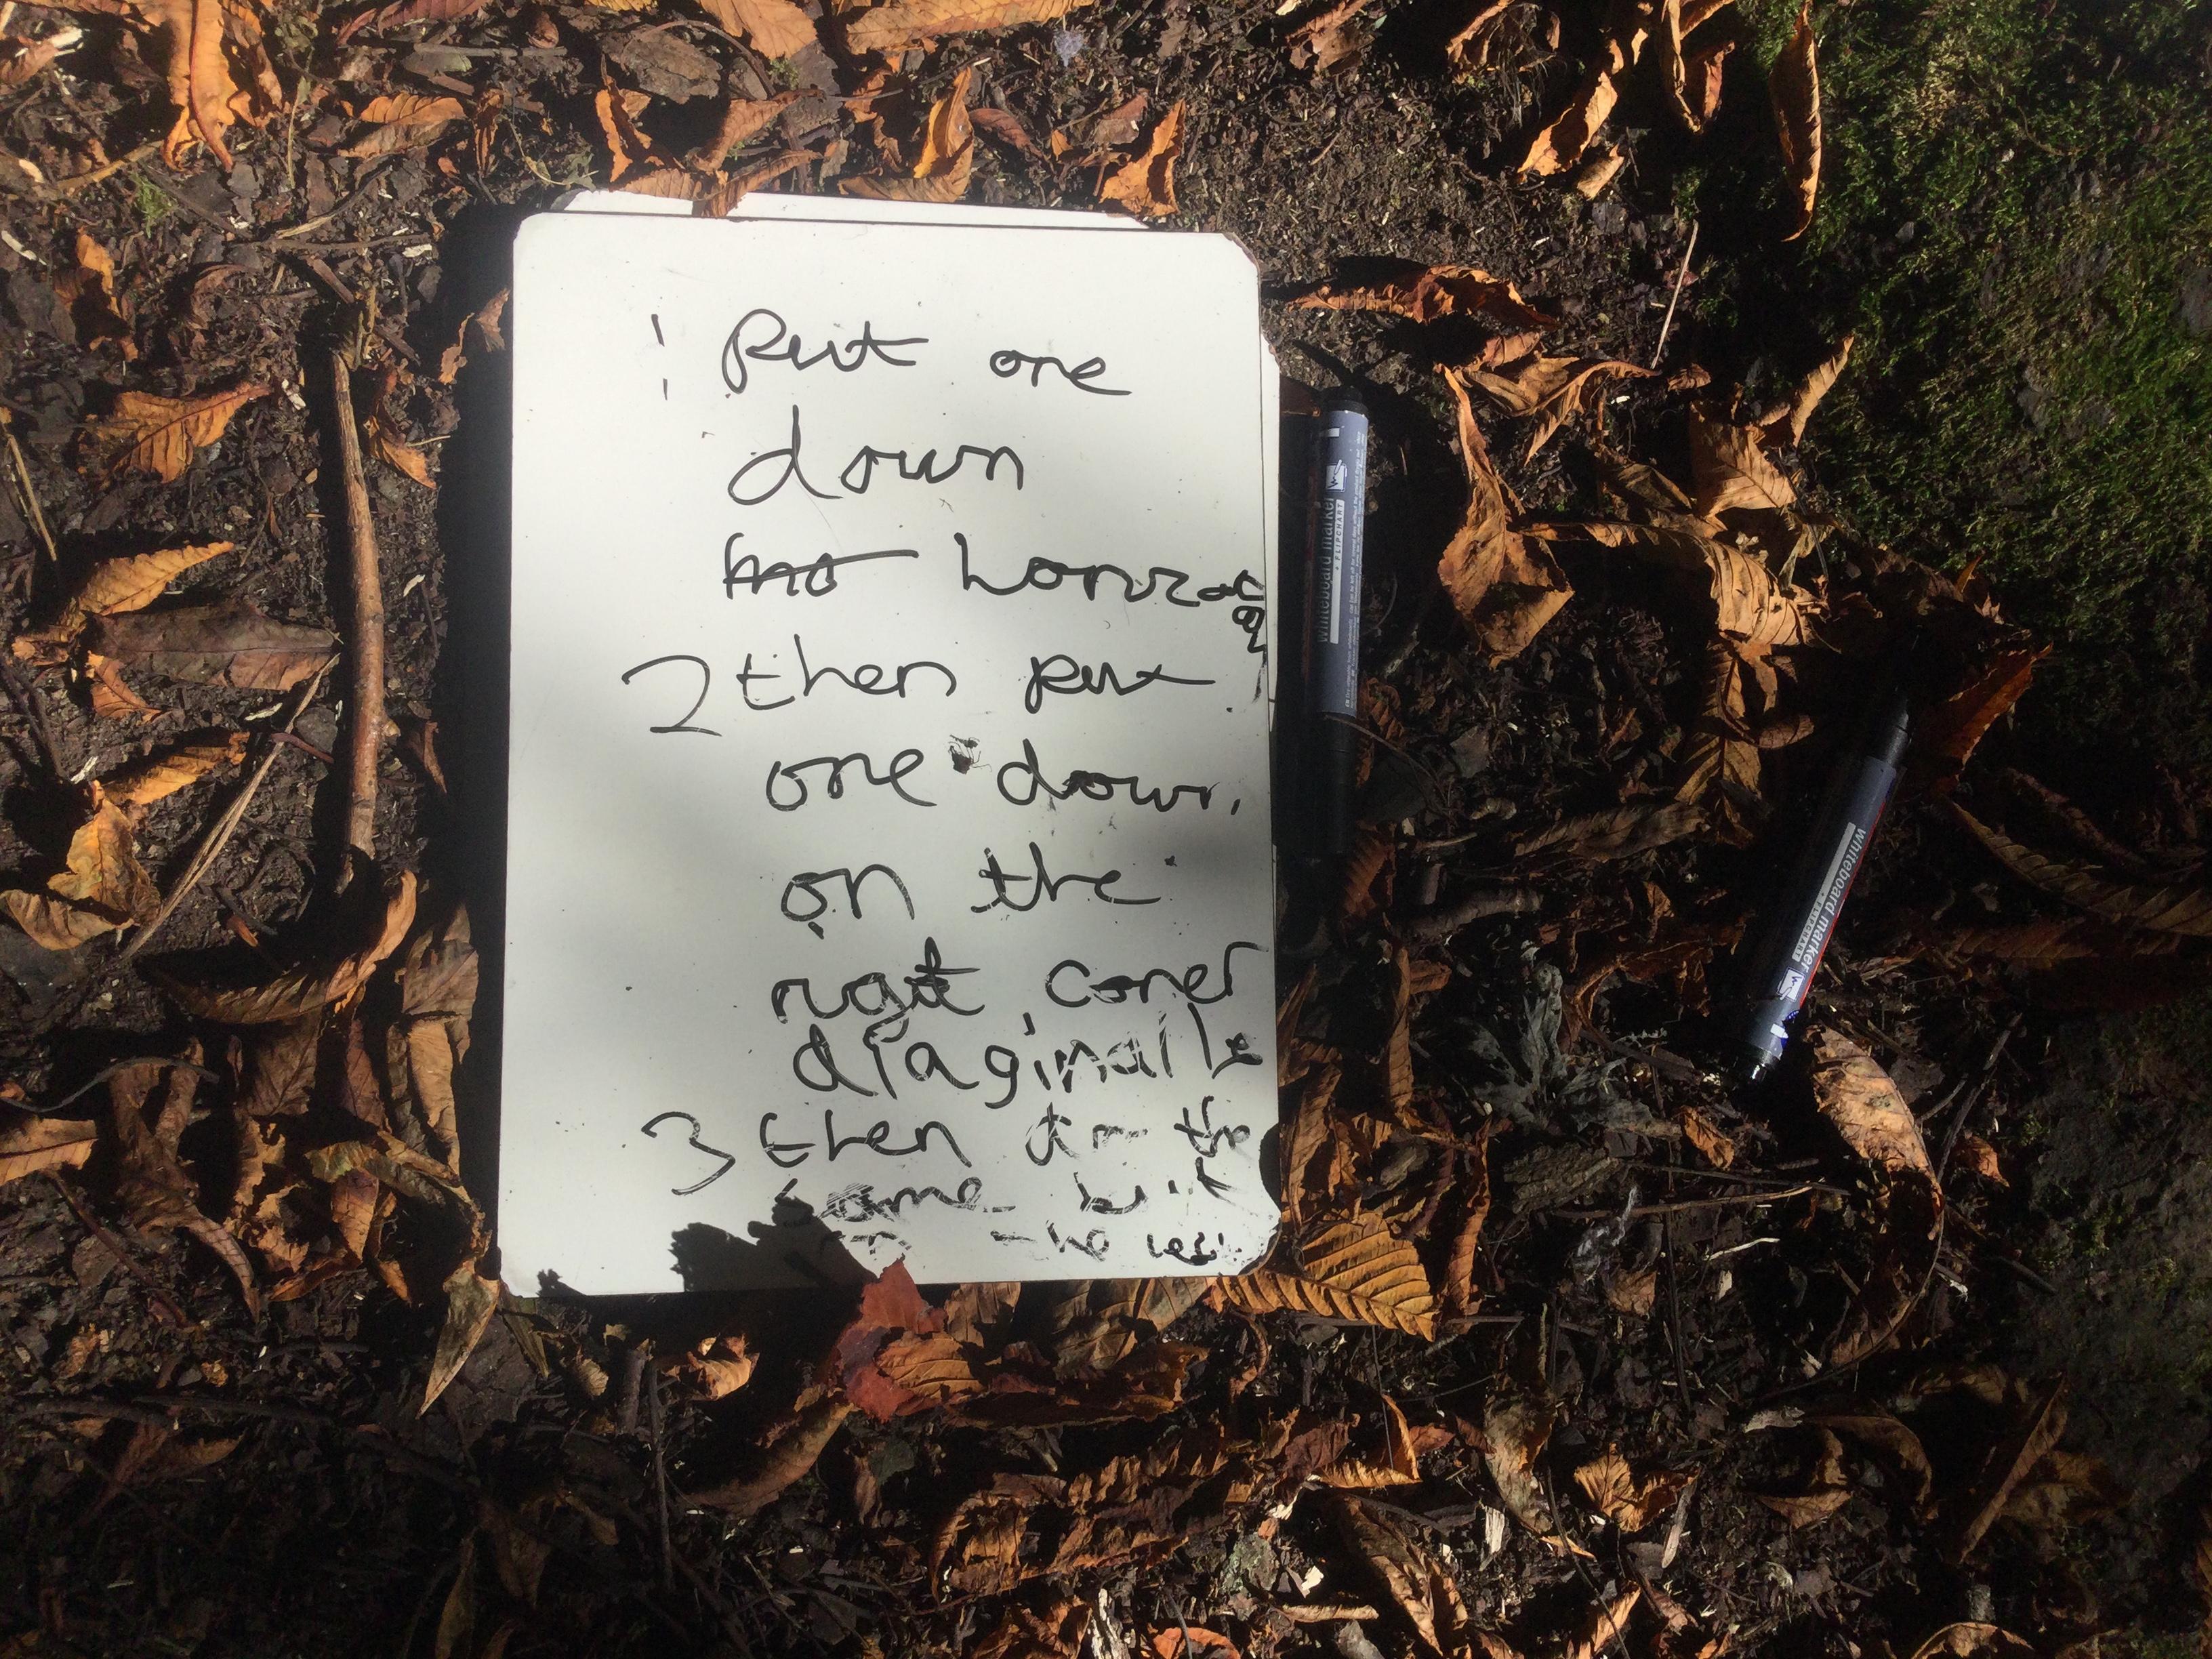 1 Put one
down
horizat
2 then put
one down
on the
right coner
diaginalle
3 then do the
same but
on the left
whiteboard marker
+ FLIPCHART
whiteboard marker
+ FLIPCHART